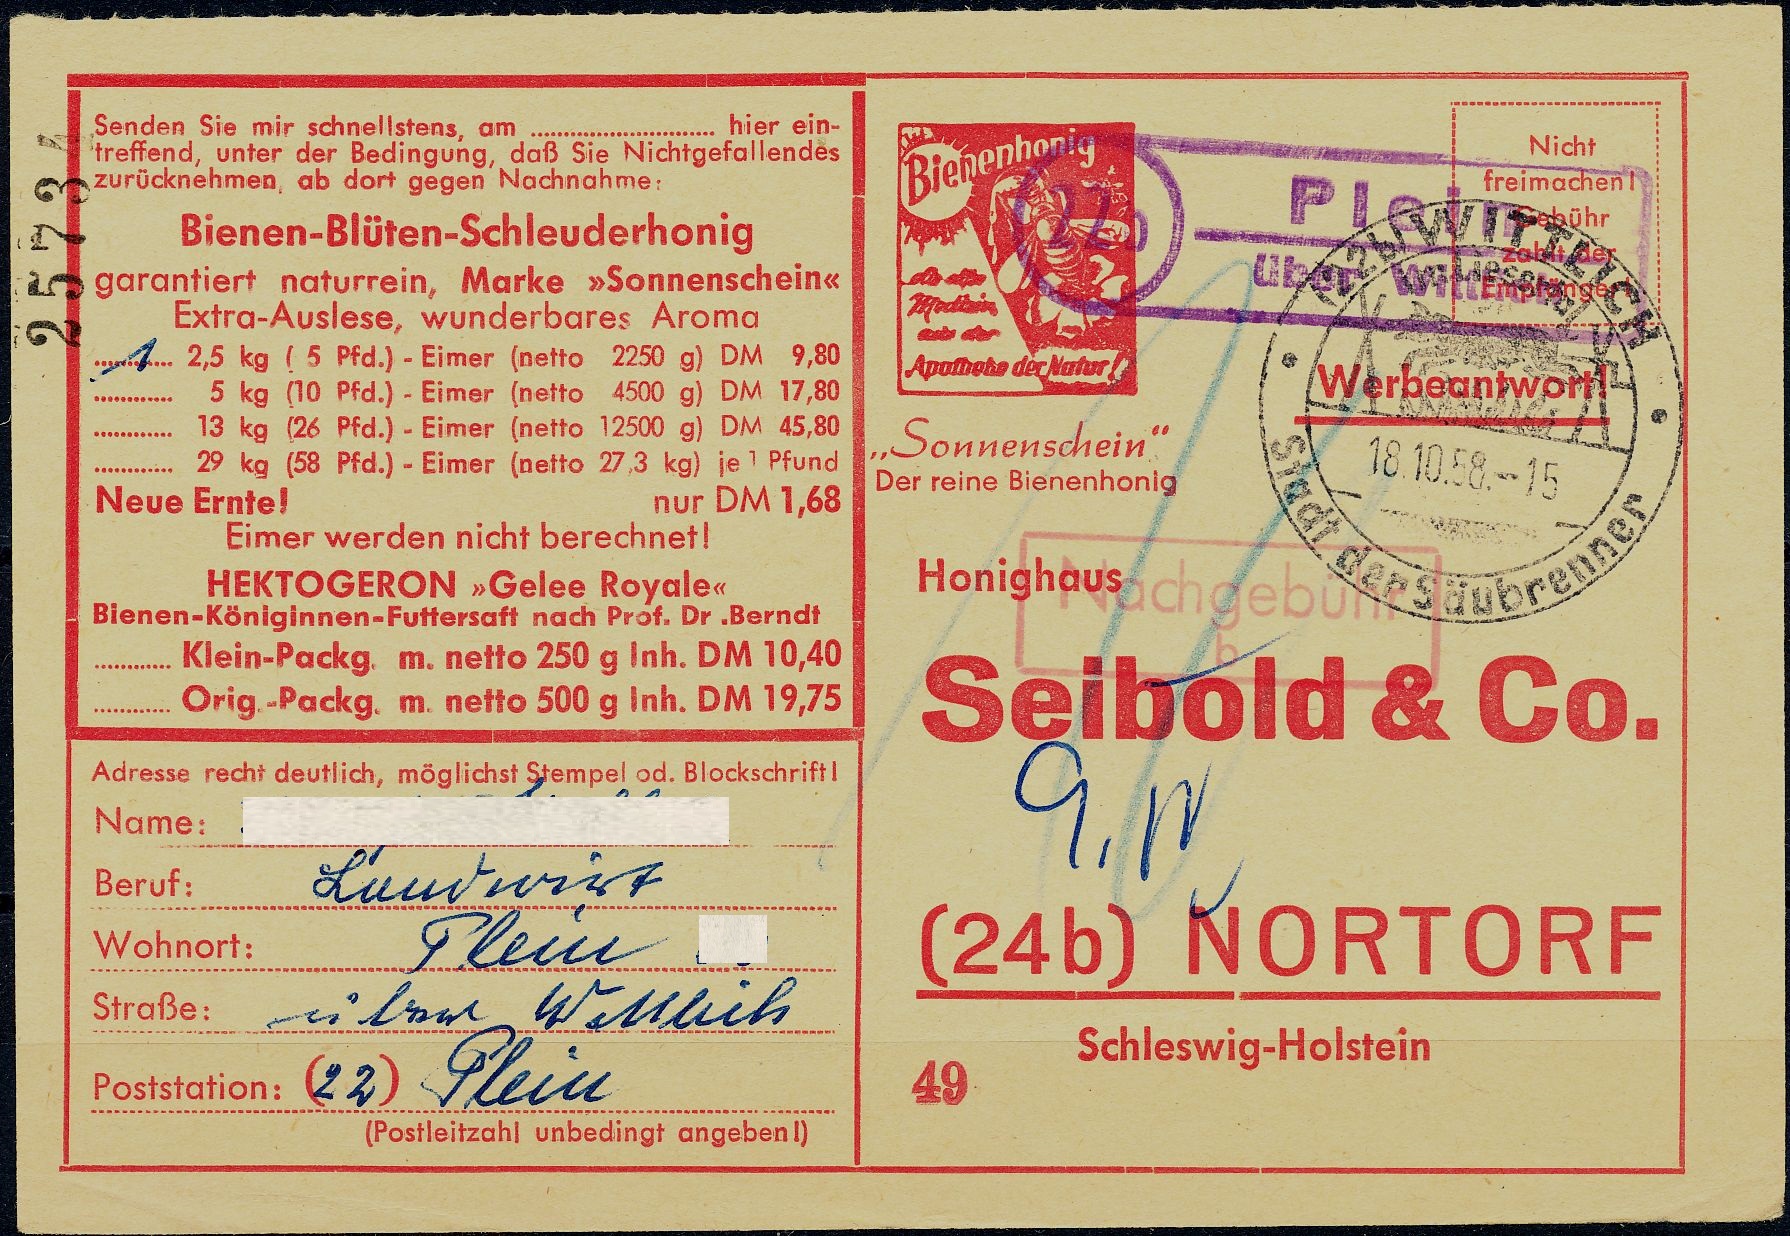 Senden Sie mir schnellstens, am .............................. hier ein-
treffend, unter der Bedingung, daß Sie Nichtgefallendes
zurücknehmen, ab dort gegen Nachnahme:
Bienen-Blüten-Schleuderhonig
garantiert naturrein, Marke »Sonnenschein«
Extra-Auslese, wunderbares Aroma
1 2,5 kg ( 5 Pfd.) - Eimer (netto 2250 g) DM 9,80
............. 5 kg (10 Pfd.) - Eimer (netto 4500 g) DM 17,80
............. 13 kg (26 Pfd.) - Eimer (netto 12500 g) DM 45,80
............. 29 kg (58 Pfd.) - Eimer (netto 27,3 kg) je 1 Pfund
Neue Ernte! nur DM 1,68
Eimer werden nicht berechnet!
HEKTOGERON »Gelee Royale«
Bienen-Königinnen-Futtersaft nach Prof. Dr .Berndt
............. Klein-Packg. m. netto 250 g Inh. DM 10,40
............. Orig.-Packg. m. netto 500 g Inh. DM 19,75
Adresse recht deutlich, möglichst Stempel od. Blockschrift!
Name:
Beruf: Landwirt
Wohnort: Plein
Straße: über Wittlich
Poststation: (22) Plein
(Postleitzahl unbedingt angeben!)
2573
Bienenhonig
die
Medizin
aus der
Apotheke der Natur!
„Sonnenschein"
Der reine Bienenhonig
22b
Plein
über Wittlich
Nicht
freimachen!
Gebühr
zahlt der
Empfänger
Werbeantwort!
(22b) WITTLICH
18.10.58.-15
Stadt der Säubrenner
Nachgebühr
b
Honighaus
Seibold & Co.
(24b) NORTORF
Schleswig-Holstein
49